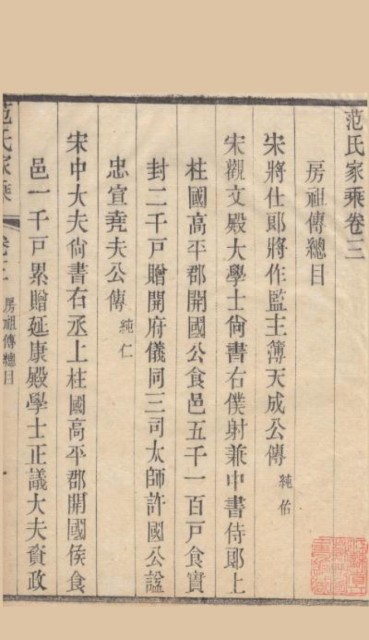 范氏家乘卷三
房祖傳總目
宋將仕郎將作監主簿天成公傳 純佑
宋觀文殿大學士尙書右僕射兼中書侍郎上
柱國高平郡開國公食邑五千一百戸食實
封二千戸贈開府儀同三司太師許國公諡
忠宣堯夫公傳 純仁
宋中大夫尙書右丞上柱國高平郡開國侯食
邑一千戸累贈延康殿學士正議大夫資政
范氏家乘 卷三 房祖傳總目 一